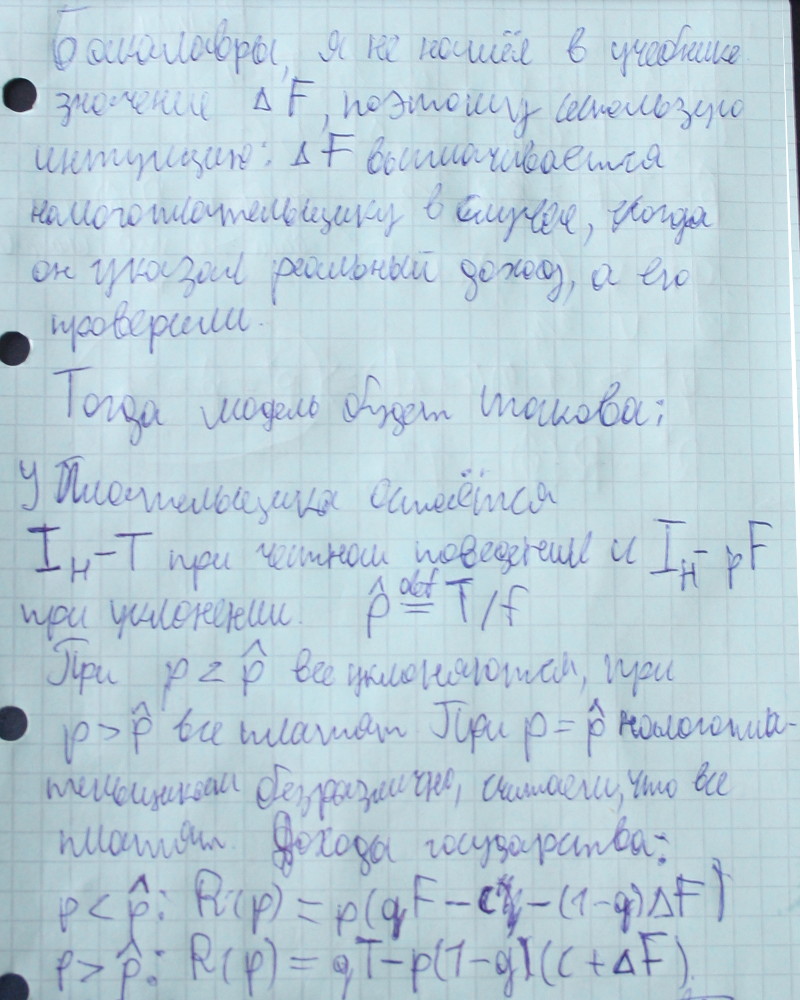 Бакалавры, я не нашёл в учебнике
значение ΔF, поэтому использую
интуицию: ΔF выплачивается
налогоплательщику в случае, когда
он указал реальный доход, а его
проверили.
Тогда модель будет такова:
У плательщика остаётся
I_H-T при честном поведении и I_H-pF
при уклонении. p̂ ≝ T/F
При p < p̂ все уклоняются, при
p > p̂ все платят При p = p̂ налогопла-
тельщикам безразлично, считаем, что все
платят. Доходы государства:
p < p̂: R(p) = p(qF - c - (1-q)ΔF)
p > p̂: R(p) = qT - p(1-q)(c + ΔF)